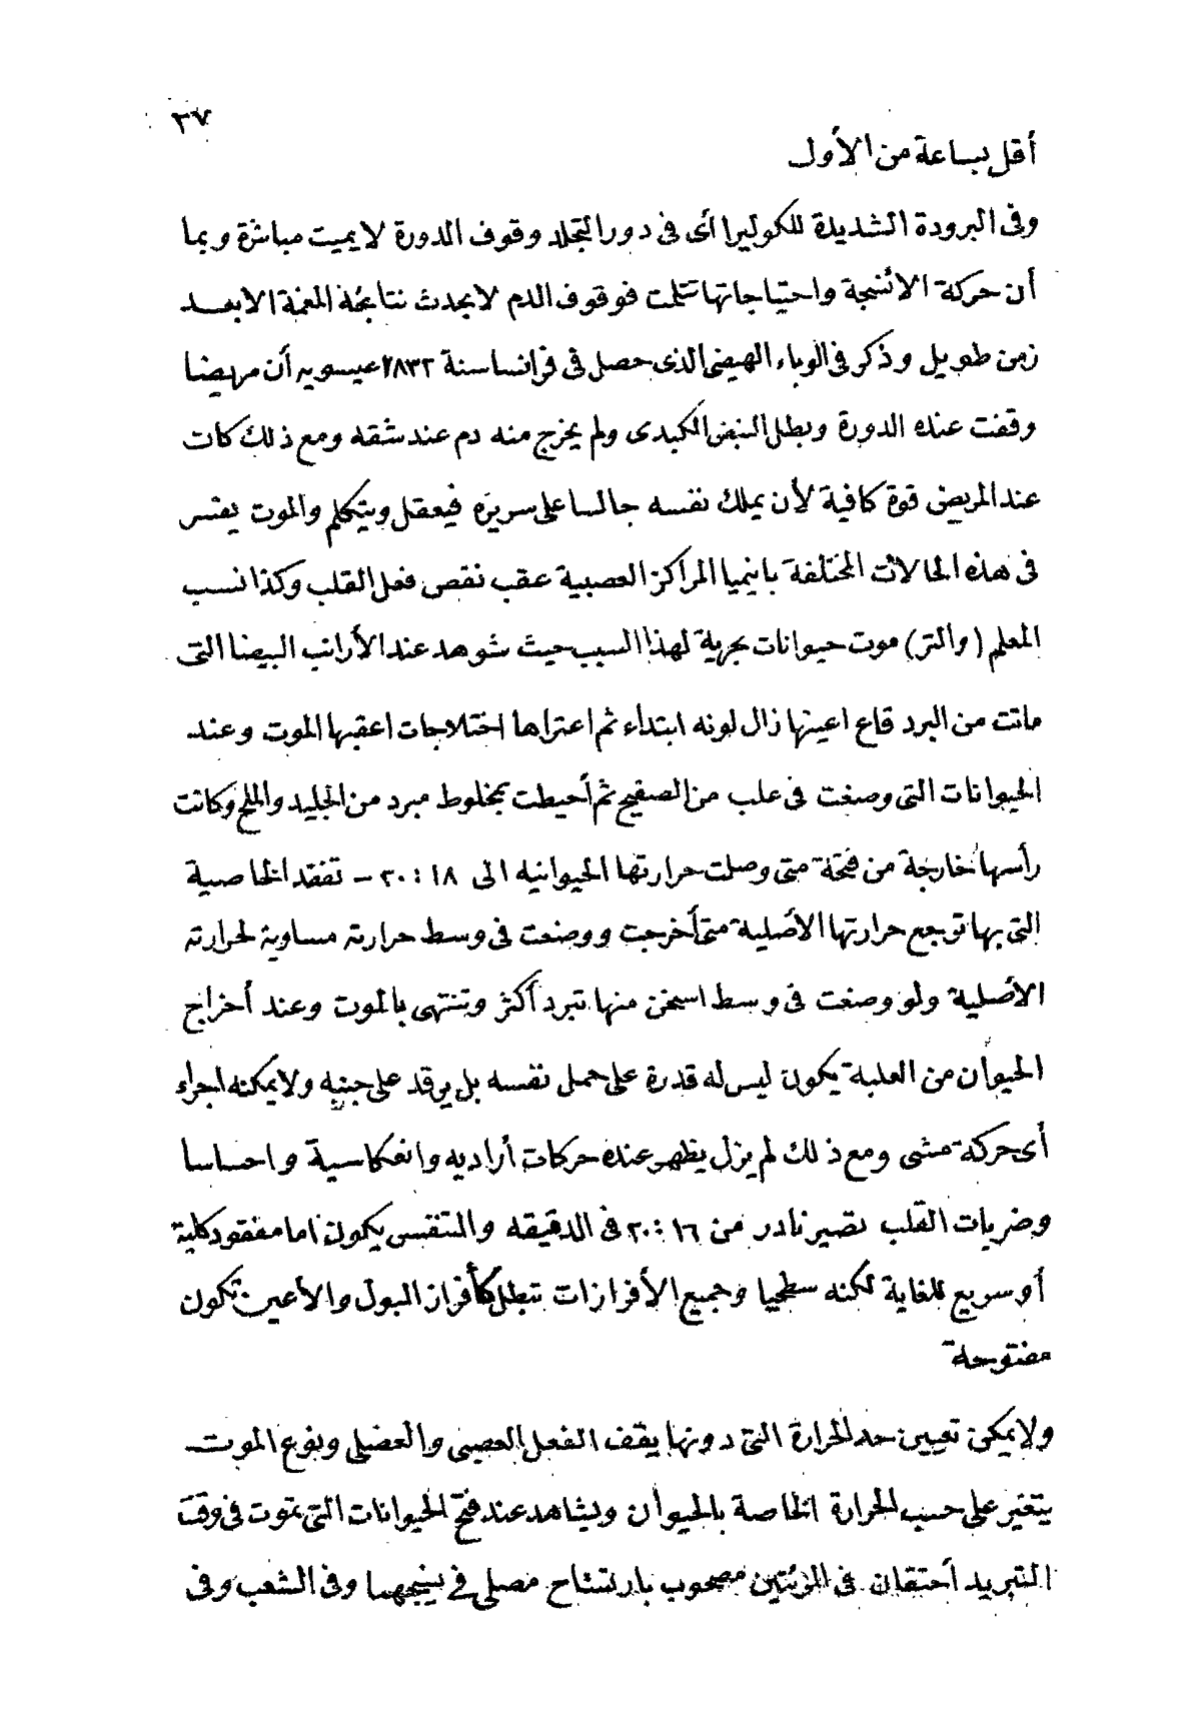 ٣٧
أقل بساعة من الأول
وفى البرودة الشديدة للكوليرا أى فى دور التجلد وقوف الدورة لا يميت مباشرة وبما
أن حركة الأنسجة واحتياجاتها تتلمت فوقوف الدم لا يحدث نتائجه المغمة الا بعد
زمن طويل وذكر فى الوباء الهيضى الذى حصل فى فرانسا سنة ١٨٣٢ عيسويه أن مريضا
وقفت عنده الدورة وبطل النبض الكبدى ولم يخرج منه دم عند شقه ومع ذلك كات
عند المريض قوة كافية لأن يملك نفسه جالسا على سريره فيعقل ويتكلم والموت يفسر
فى هذه الحالات المختلفة بانيميا المراكز العصبية عقب نقص فعل القلب وكذا نسب
المعلم (والتر) موت حيوانات بجرية لهذا السبب حيث شوهد عند الأرانب البيضا التى
ماتت من البرد قاع اعينها زال لونه ابتداء ثم اعتراها اختلاجات اعقبها الموت وعند
الحيوانات التى وضعت فى علب من الصفيح ثم أحيطت بمخلوط مبرد من الجليد والملح وكانت
رأسها خارجة من فتحة متى وصلت حرارتها الحيوانيه الى ١٨ : ٢٠ – تفقد الخاصية
التى بها ترجع حرارتها الأصلية متى أخرجت ووضعت فى وسط حرارته مساوية لحرارته
الأصلية ولو وضعت فى وسط اسخن منها تبرد أكثر وتنتهى بالموت وعند أخراج
الحيوان من العلبة يكون ليس له قدرة على حمل نفسه بل يرقد على جنبه ولا يمكنه اجراء
أى حركة مشى ومع ذلك لم يزل يظهر عنده حركات أراديه وانعكاسية واحساسا
وضربات القلب تصير نادر من ١٦ : ٢٠ فى الدقيقه والتنفس يكون اما مفقود كلية
أو سريع للغاية لكنه سطحيا وجميع الأفرازات تبطل كأفراز البول والأعين تكون
مفتوحة
ولا يمكن تعيين حد الحرارة التى دونها يقف الفعل العصبى والعضلى ونوع الموت
يتغير على حسب الحرارة الخاصة بالحيوان ويشاهد عند فتح الحيوانات التى تموت فى وقت
التبريد أحتقان فى الرئتين مصحوب بارتشاح مصلى فى نسيجهما وفى الشعب وفى